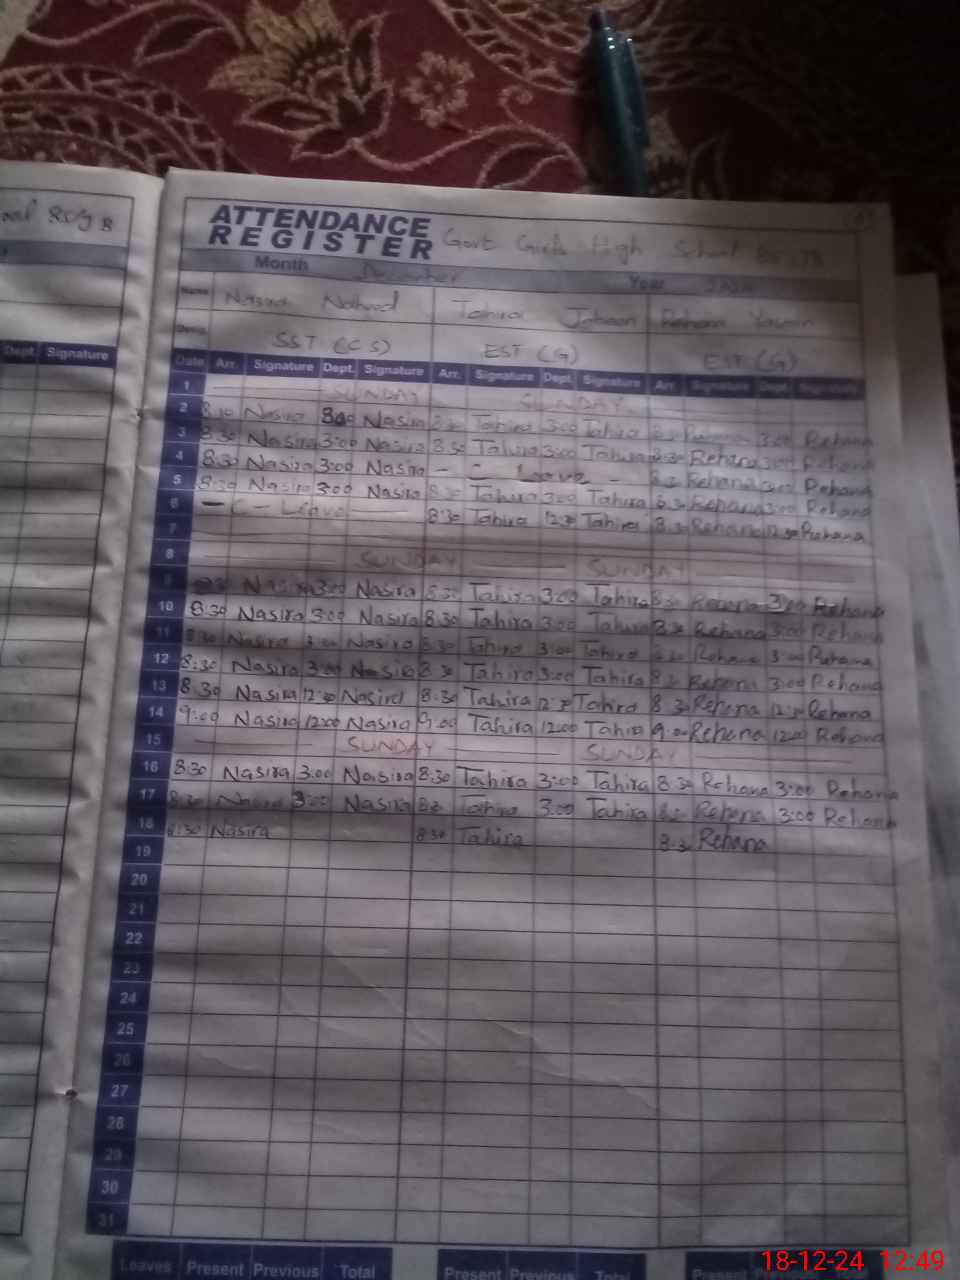 ATTENDANCE
REGISTER Govt Girls High School
Month December Year
Name Naheed Tahira Rehana
Desig. SST (CS) EST (G) EST (G)
Dept. Signature
Date Arr. Signature Dept. Signature Arr. Signature Dept. Signature Arr. Signature Dept.
1 SUNDAY SUNDAY
2 8:30 Nasira Nasira Tahira 3:00 Tahira 3:00 Rehana
3 8:30 Nasira 3:00 Nasira 8:30 Tahira 3:00 Tahira 8:30 Rehana 3:00 Rehana
4 8:30 Nasira 3:00 Nasira - C - Leave - 8:30 Rehana 3:00 Rehana
5 8:30 Nasira 3:00 Nasira 8:30 Tahira 3:00 Tahira 8:30 Rehana 3:00 Rehana
6 - C - Leave 8:30 Tahira 12:30 Tahira 8:30 Rehana 12:30 Rehana
7
8 SUNDAY SUNDAY
9 Nasira 3:00 Nasira 8:30 Tahira 3:00 Tahira 8:30 Rehana 3:00 Rehana
10 8:30 Nasira 3:00 Nasira 8:30 Tahira 3:00 Tahira 8:30 Rehana 3:00 Rehana
11 8:30 Nasira 3:00 Nasira 8:30 Tahira 3:00 Tahira 8:30 Rehana 3:00 Rehana
12 8:30 Nasira 3:00 Nasira 8:30 Tahira 3:00 Tahira 8:30 Rehana 3:00 Rehana
13 8:30 Nasira 12:30 Nasira 8:30 Tahira 12:30 Tahira 8:30 Rehana 12:30 Rehana
14 9:00 Nasira 12:00 Nasira 9:00 Tahira 12:00 Tahira 9:00 Rehana 12:00 Rehana
15 SUNDAY SUNDAY
16 8:30 Nasira 3:00 Nasira 8:30 Tahira 3:00 Tahira 8:30 Rehana 3:00 Rehana
17 8:30 Nasira 3:00 Nasira 8:30 Tahira 3:00 Tahira 8:30 Rehana 3:00 Rehana
18 8:30 Nasira 8:30 Tahira 8:30 Rehana
19
20
21
22
23
24
25
26
27
28
29
30
31
Leaves Present Previous Total Present Previous Total Present
18-12-24 12:49